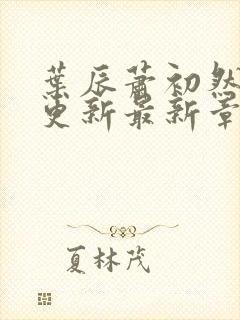 葉辰蕭初然
更新最新章
夏林茂